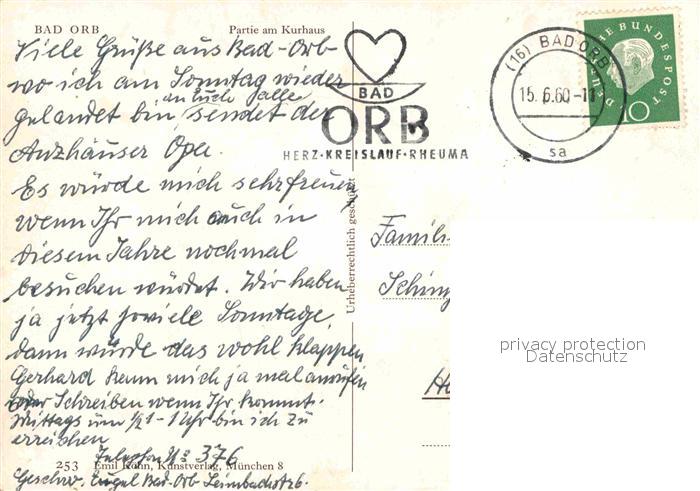 BAD ORB Partie am Kurhaus
Viele Grüße aus Bad-Orb-
wo ich am Sonntag wieder
gelandet bin, sendet der
an Euch Alle
Auzhäuser Opa.
Es würde mich sehr freuen
wenn Ihr mich auch in
diesem Jahre nochmal
besuchen würdet. Wir haben
ja jetzt soviele Sonntage,
dann würde das wohl klappen
Gerhard kann mich ja mal anrufen
oder Schreiben wenn Ihr kommt.
Mittags um ½1-1 Uhr bin ich zu
erreichen
Telephon No 376
253 Emil Köhn, Kunstverlag, München 8
Geschw. Engel Bad-Orb Leimbachstr 6.
Urheberrechtlich geschützt
BAD
ORB
HERZ·KREISLAUF·RHEUMA
(16) BAD ORB
15.6.60-11
sa
DEUTSCHE BUNDESPOST
10
Famili
Schin
privacy protection
Datenschutz